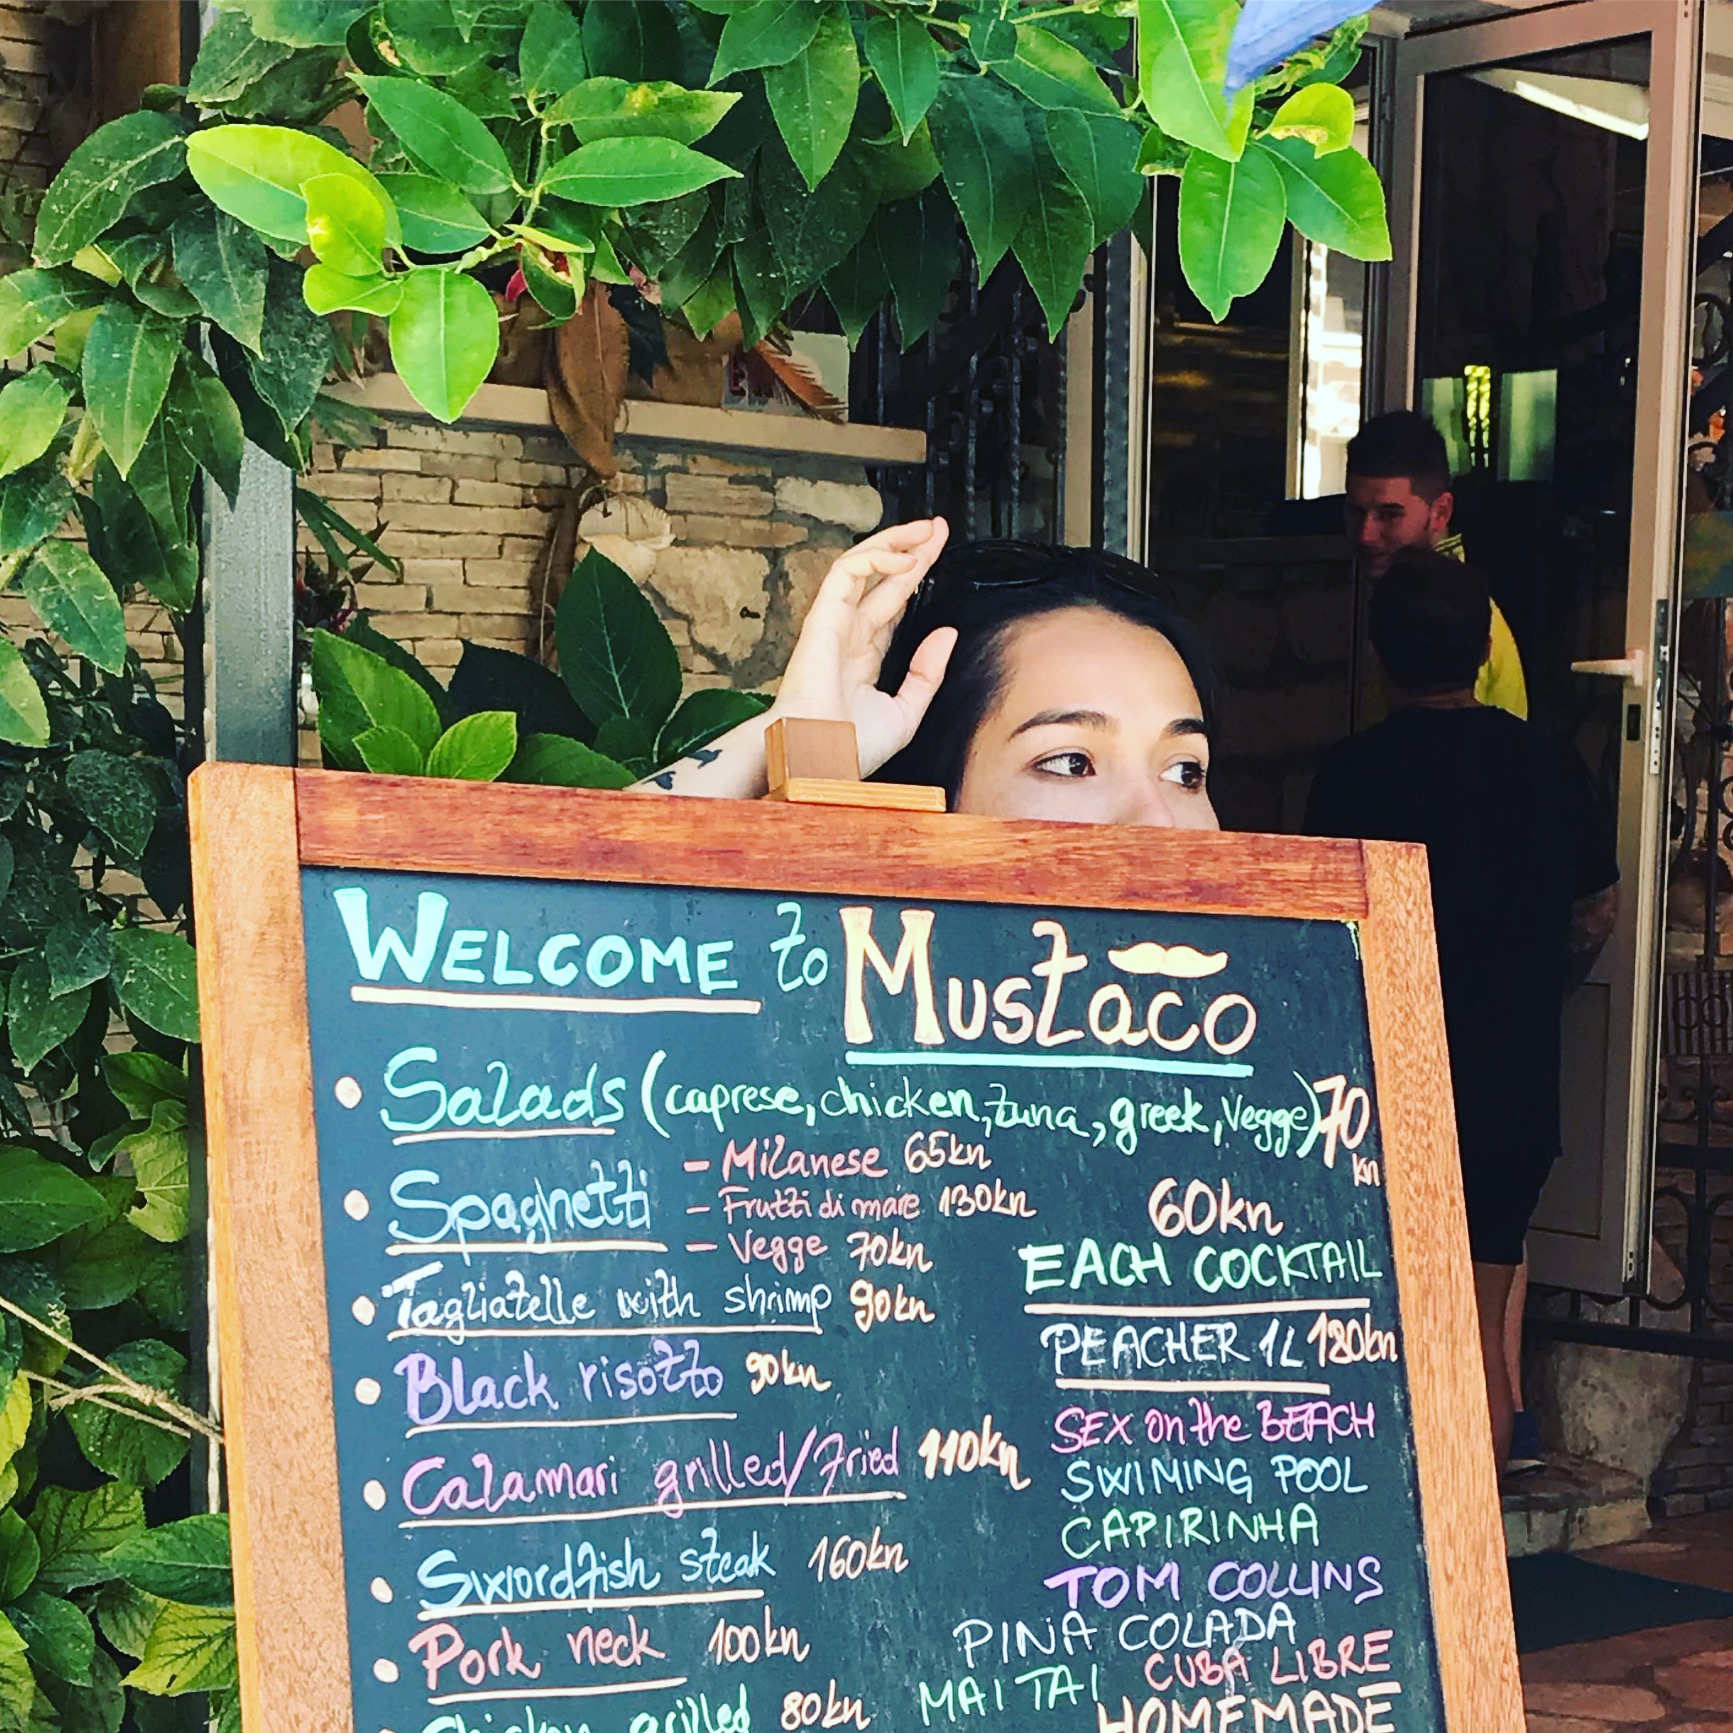 WELCOME to Mustaco
Salads (caprese, chicken, tuna, greek, Vegge) 70 kn
Spaghetti
- Milanese 65kn
- Frutti di mare 130kn
- Vegge 70kn
Tagliatelle with shrimp 90kn
Black risotto 90kn
Calamari grilled/fried 110kn
Swordfish steak 160kn
Pork neck 100kn
Chicken grilled 80kn
60kn
EACH COCKTAIL
PEACHER 1L 180kn
SEX on the BEACH
SWIMING POOL
CAPIRINHA
TOM COLLINS
PINA COLADA
CUBA LIBRE
MAI TAI
HOMEMADE